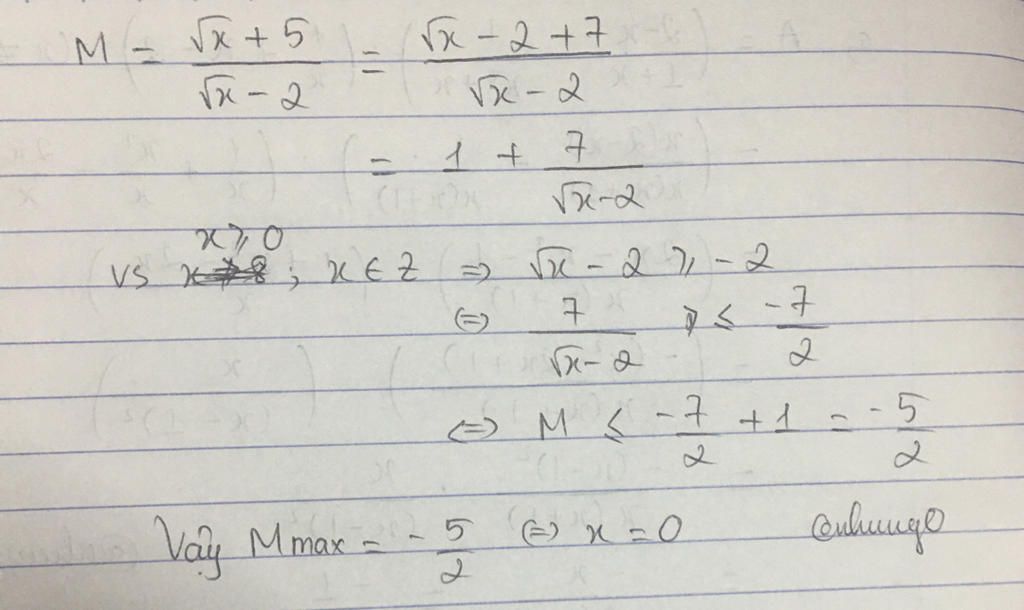 M = (√x + 5)/(√x - 2) = (√x - 2 + 7)/(√x - 2)
= 1 + 7/(√x-2)
x ⩾ 0
vs ; x ∈ Z ⇒ √x - 2 ⩾ - 2
⇔ 7/(√x-2) ≤ -7/2
⇔ M ≤ -7/2 + 1 = -5/2
Vậy Mmax = -5/2 ⇔ x = 0 @nhungo